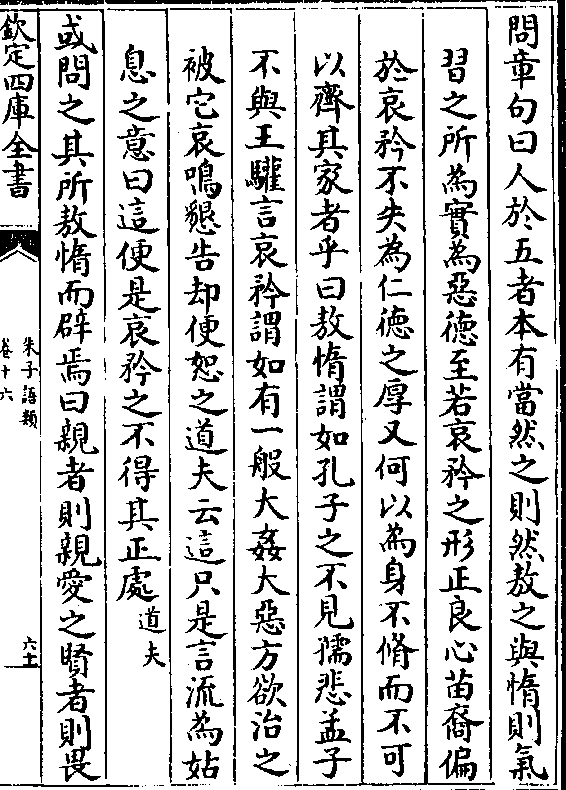 問章句曰人於五者本有當然之則然敖之與惰則氣
習之所為實為惡德至若哀矜之形正良心苗裔偏
於哀矜不失為仁德之厚又何以為身不脩而不可
以齊其家者乎曰敖惰謂如孔子之不見孺悲孟子
不與王驩言哀矜謂如有一般大姦大惡方欲治之
被它哀鳴懇告却便恕之道夫云這只是言流為姑
息之意曰這便是哀矜之不得其正處道夫
或問之其所敖惰而辟焉曰親者則親愛之賢者則畏
欽定四庫全書
朱子語類
卷十六
六十